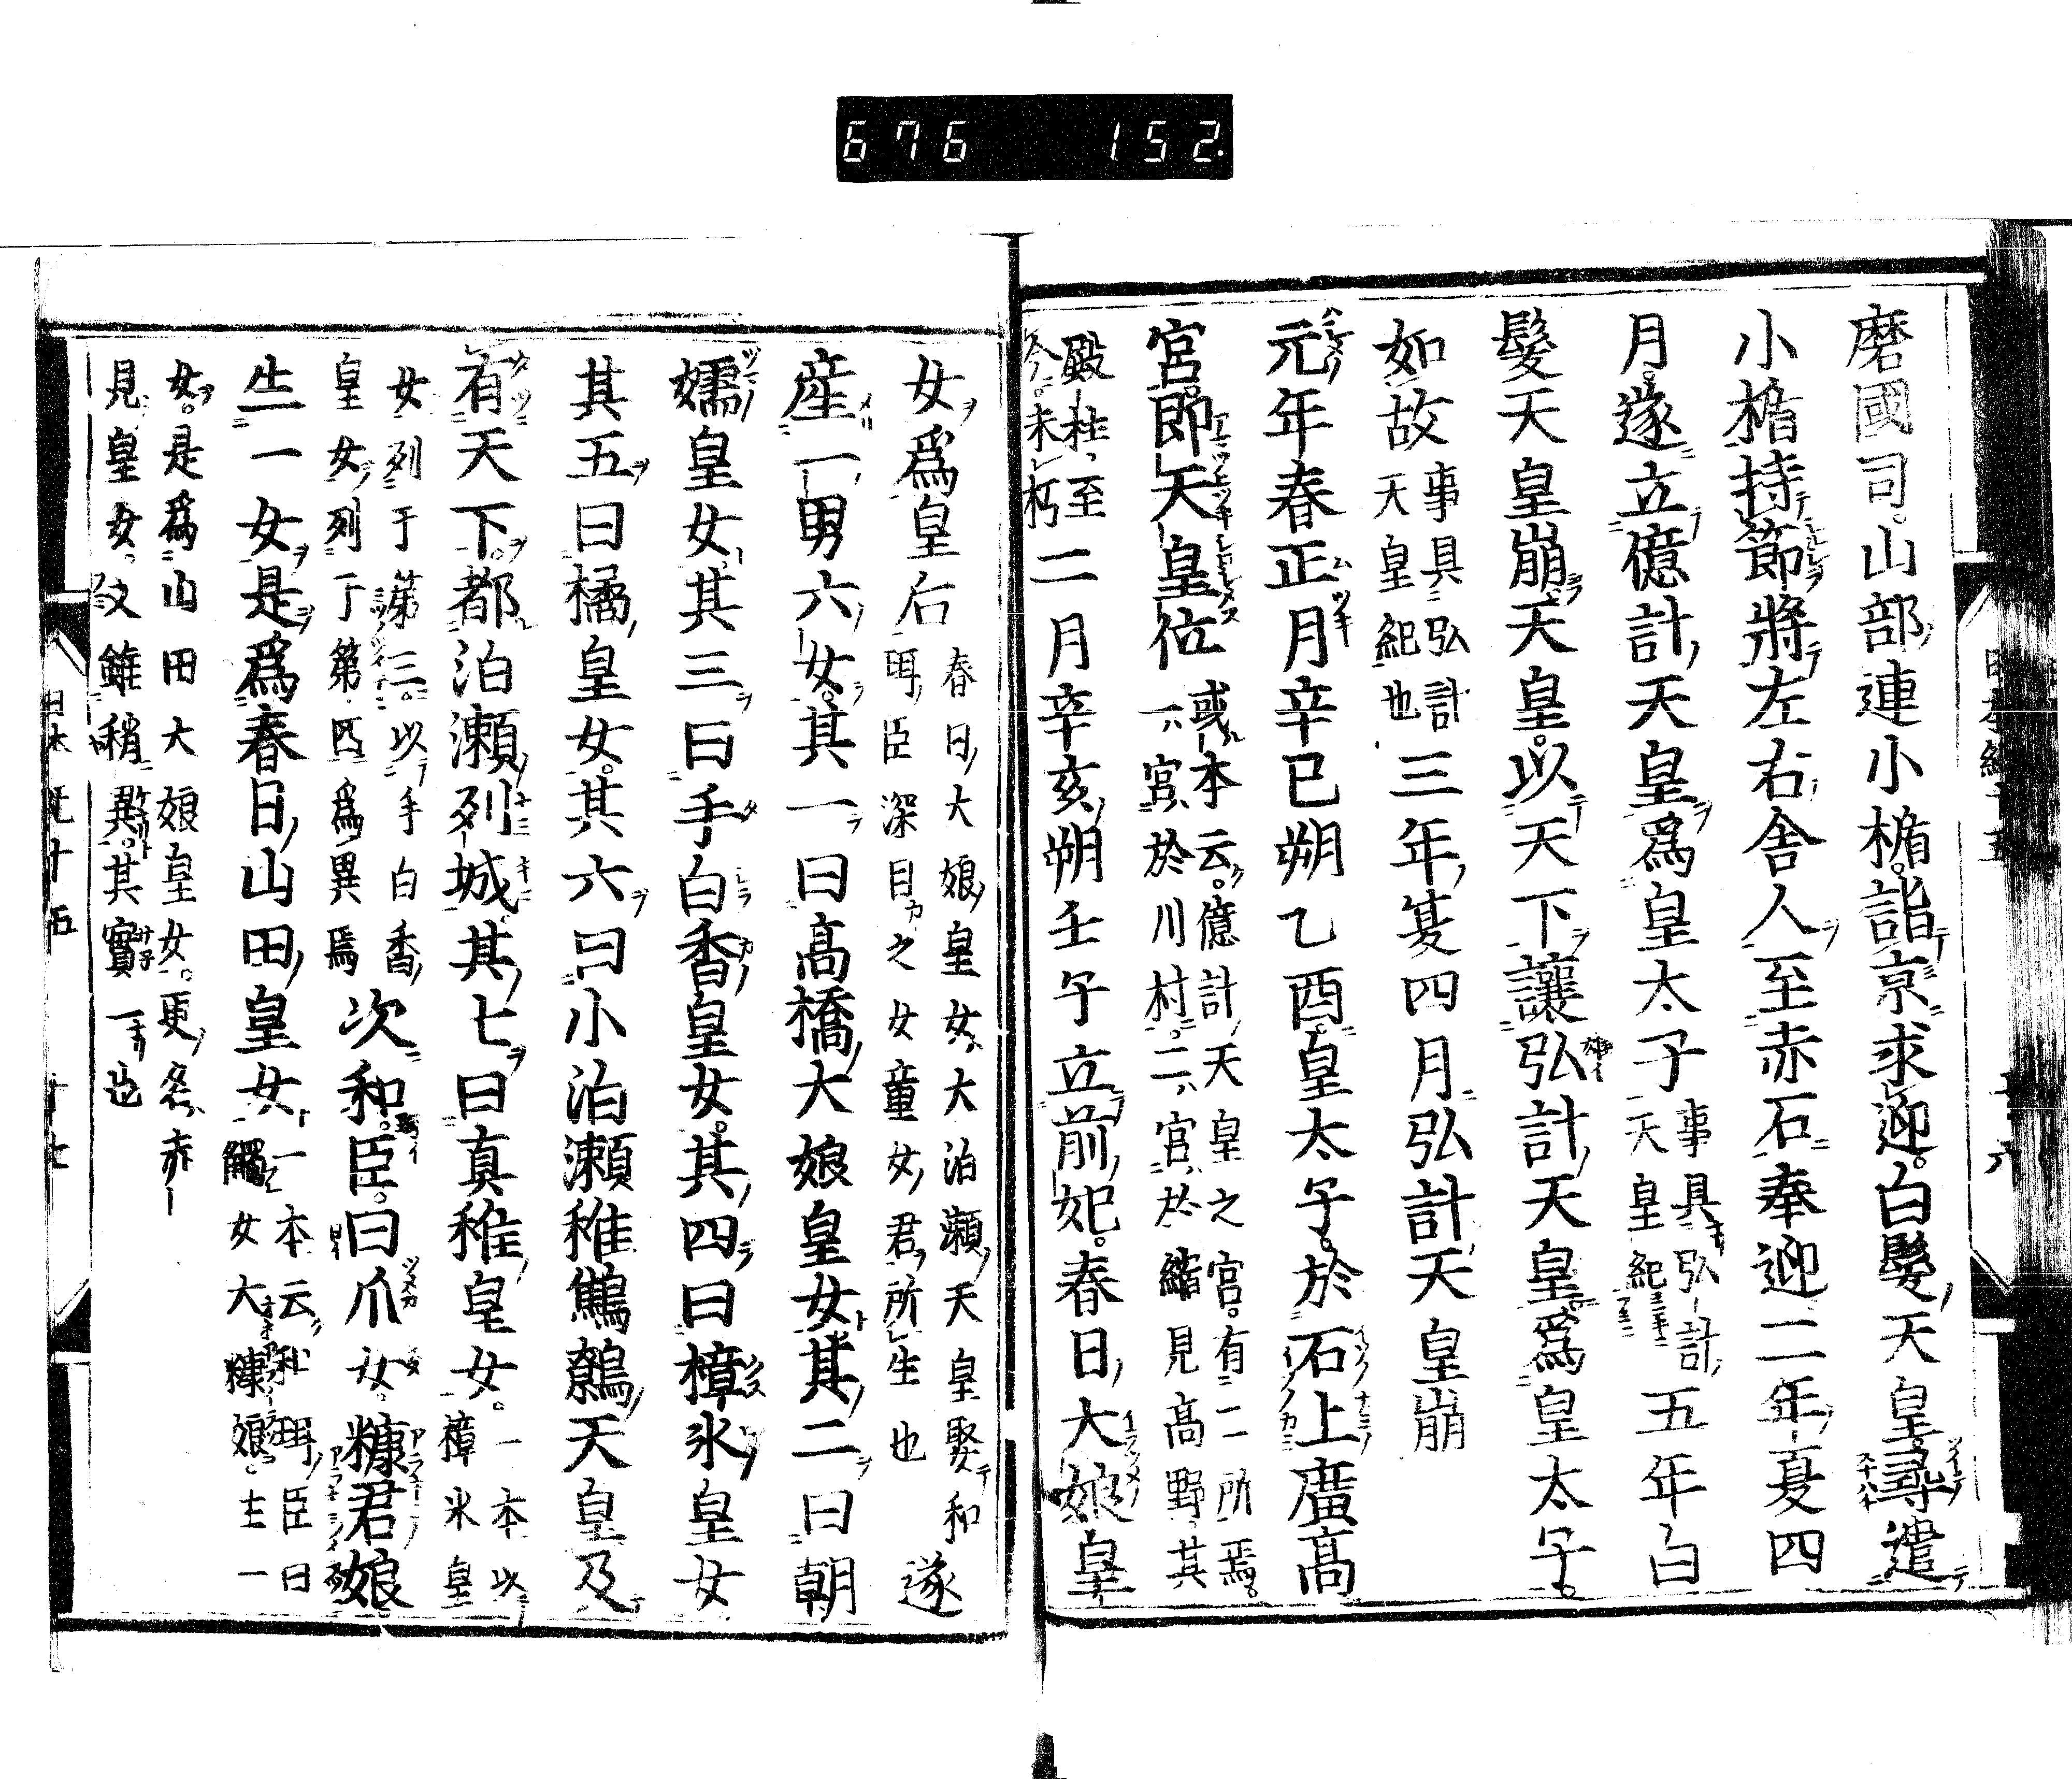 676 152.
磨國司山部連小楯詣京求迎白髮天皇尋遣
小楯持節將左右舍人至赤石奉迎二年夏四
月遂立億計天皇爲皇太子事具弘計天皇紀五年白
髮天皇崩天皇以天下讓弘計天皇爲皇太子
如故事具弘計天皇紀也三年夏四月弘計天皇崩
元年春正月辛巳朔乙酉皇太子於石上廣高
宮即天皇位或本云億計天皇之宮有二所焉一宮於川村二宮於縮見高野其
殿柱至今未朽二月辛亥朔壬子立前妃春日大娘皇
女爲皇后春日大娘皇女大泊瀬天皇娶和珥臣深目之女童女君所生也遂
産一男六女其一曰高橋大娘皇女其二曰朝
嬬皇女其三曰手白香皇女其四曰樟氷皇女
其五曰橘皇女其六曰小泊瀬稚鷦鷯天皇及
有天下都泊瀬列城其七曰真稚皇女一本以樟氷皇
女列于第三以手白香皇女列于第四爲異焉次和珥臣日爪女糠君娘
生一女是爲春日山田皇女一本云和珥臣日觸女大糠娘生一
女是爲山田大娘皇女更名赤見皇女文雖稍異其實一也